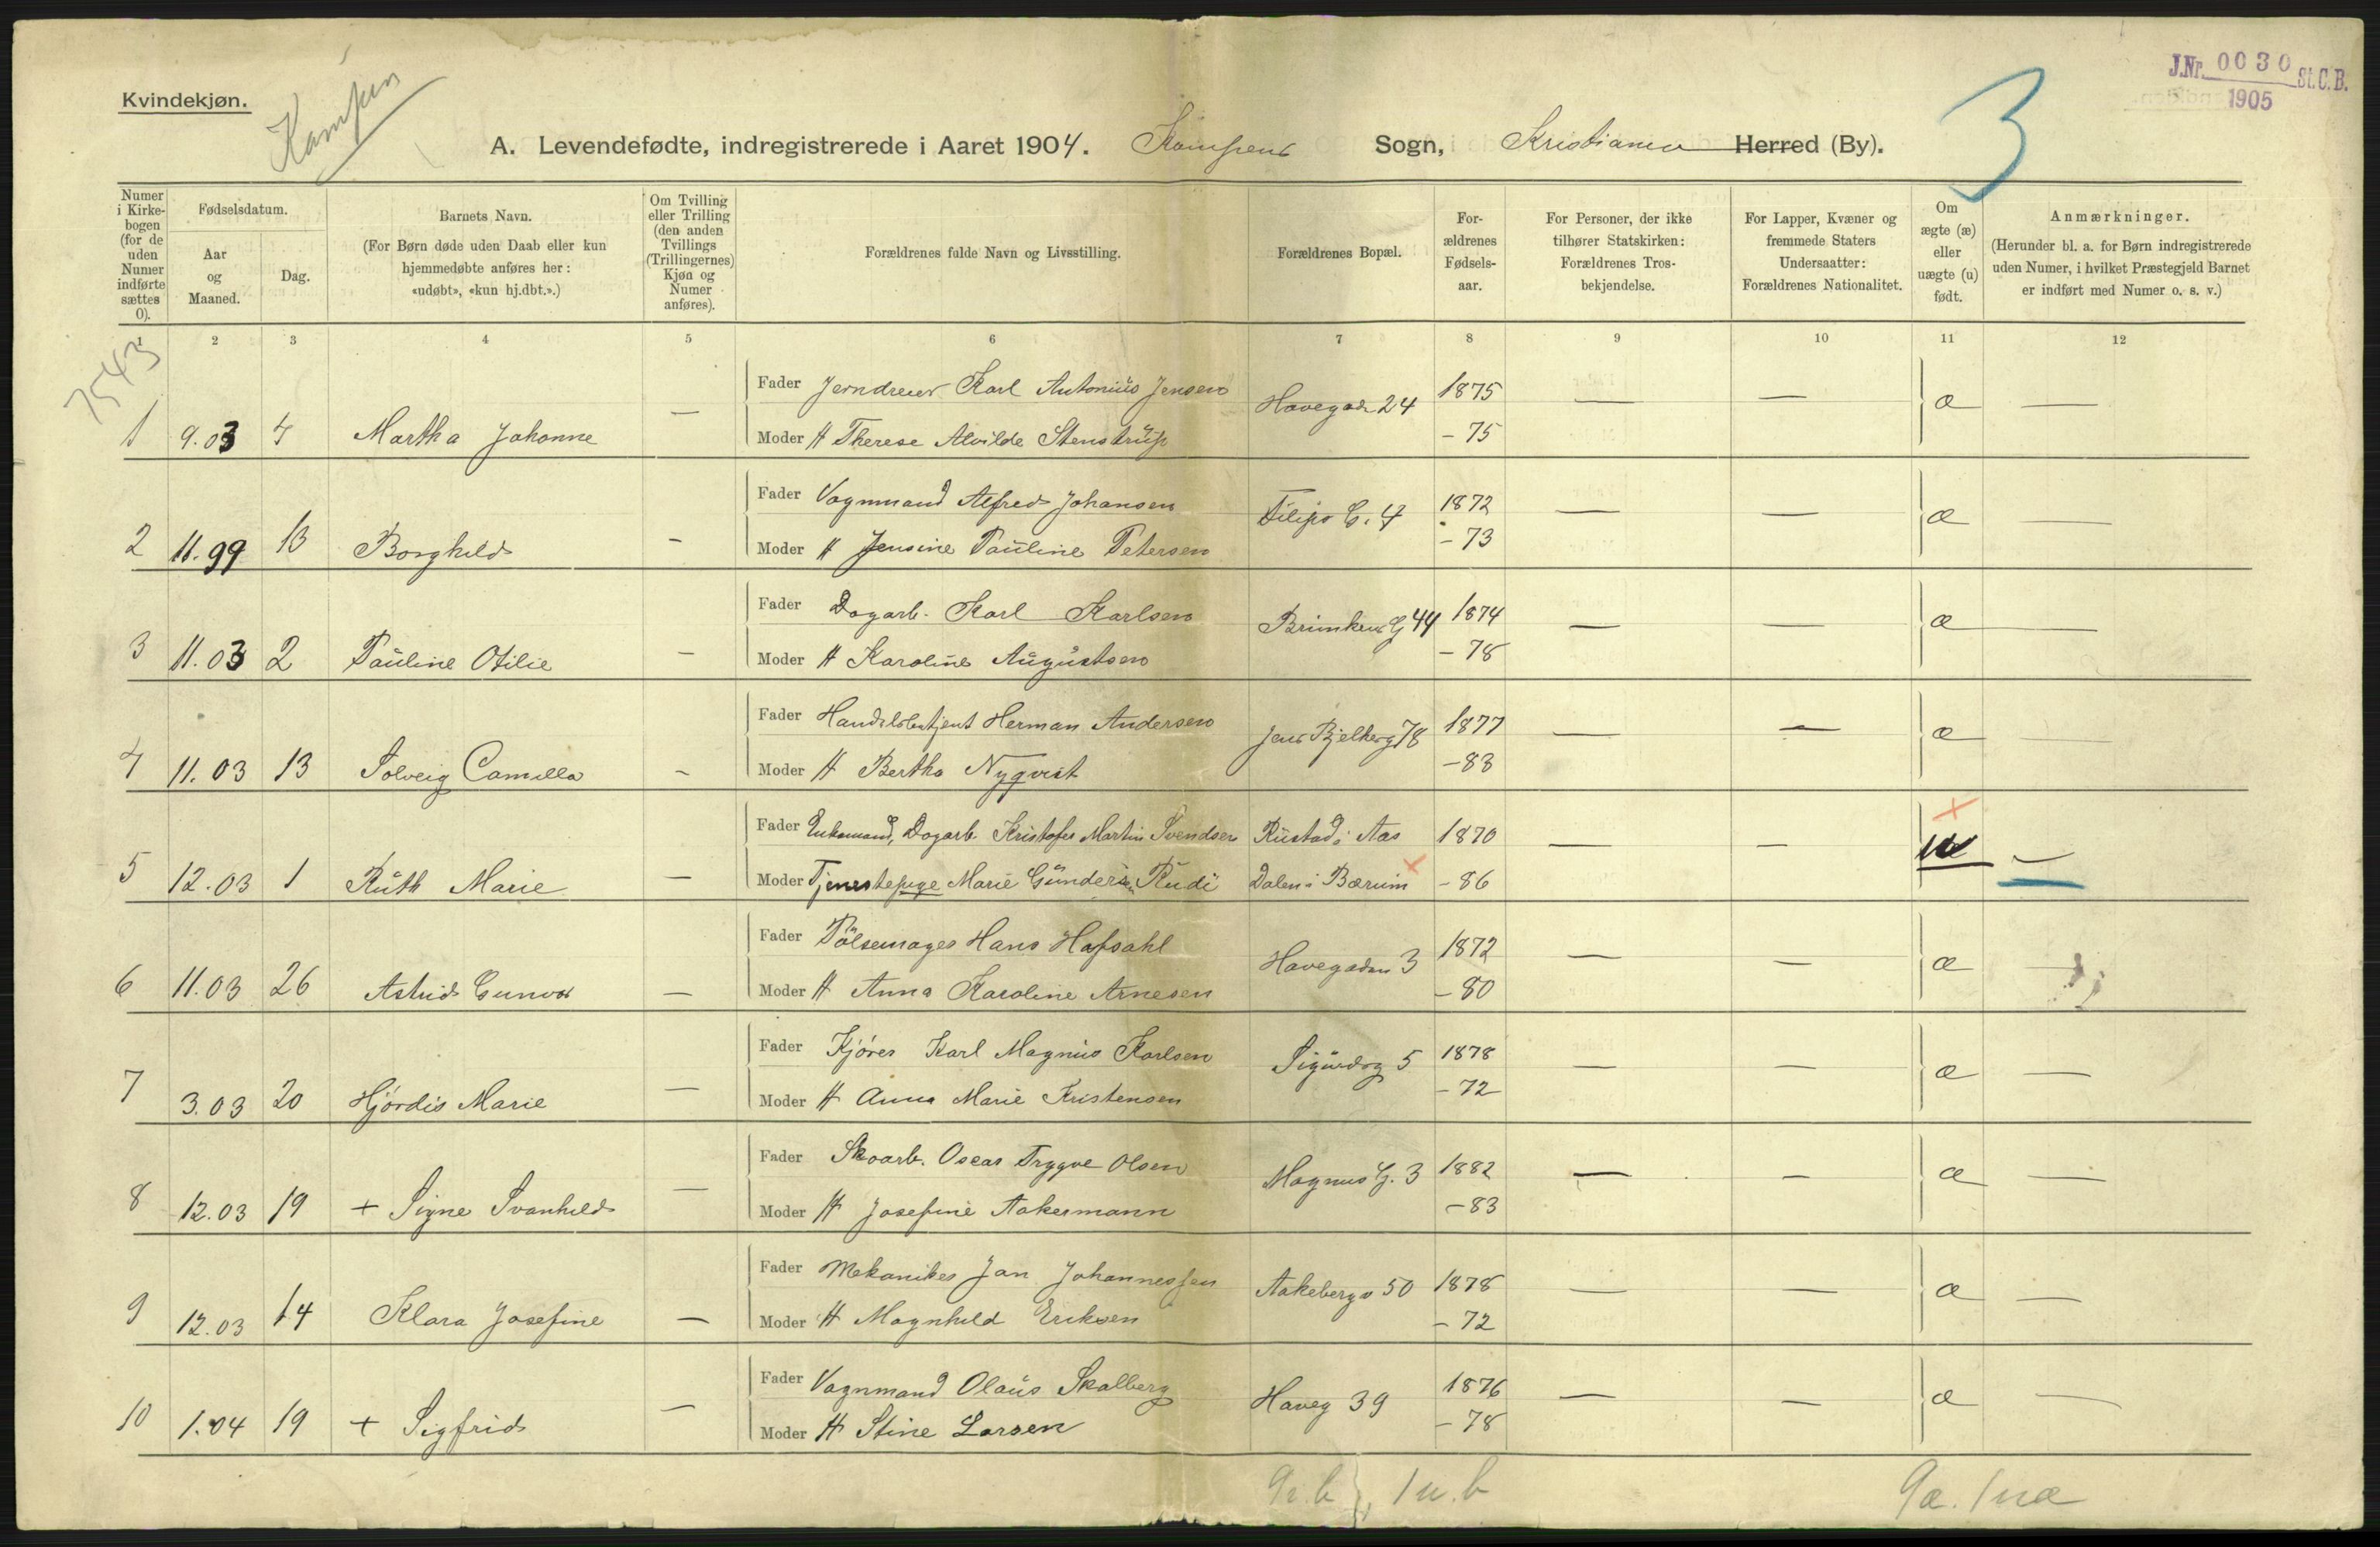 J.Nr. 0030 St.C.B.
1905
Kvindekjøn.
Kampen
3
A. Levendefødte, indregistrerede i Aaret 1904. Kampens Sogn, Kristiania Herred (By).
Numer i Kirkebogen (for de uden Numer indførte sættes 0).
Fødselsdatum.
Aar og Maaned.
Dag.
Barnets Navn.
(For Børn døde uden Daab eller kun hjemmedøbte anføres her: «udøbt», «kun hj.dbt.».)
Om Tvilling eller Trilling (den anden Tvillings (Trillingernes) Kjøn og Numer anføres).
Forældrenes fulde Navn og Livsstilling.
Forældrenes Bopæl.
Forældrenes Fødselsaar.
For Personer, der ikke tilhører Statskirken: Forældrenes Trosbekjendelse.
For Lapper, Kvæner og fremmede Staters Undersaatter: Forældrenes Nationalitet.
Om ægte (æ) eller uægte (u) født.
Anmærkninger.
(Herunder bl. a. for Børn indregistrerede uden Numer, i hvilket Præstegjeld Barnet er indført med Numer o. s. v.)
1 2 3 4 5 6 7 8 9 10 11 12
7543
Fader Jerndreier Karl Antonius Jensen Havegad 24 1875 — — æ —
1 9.03 4 Martha Johanne — Moder H Therese Alvilde Stenstrup - 75
Fader Vognmand Alfred Johansen Filips G. 4 1872 — — æ —
2 11.99 13 Borghild — Moder H Jensine Pauline Petersen - 73
Fader Dagarb. Karl Karlsen Brinken G 44 1874 — — æ —
3 11.03 2 Pauline Otilie — Moder H Karoline Augustsen - 78
Fader Handelsbetjent Herman Andersen Jens Bjelkeg 78 1877 — — æ —
4 11.03 13 Solveig Camilla — Moder H Bertha Nyqvist - 83
Fader Enkemand, Dagarb. Kristofer Martin Svendsen Rustad i Aas 1870 — — u —
5 12.03 1 Ruth Marie — Moder Tjenestepige Marie Gundersen Rudi Dalen i Bærum - 86
Fader Pölsemager Hans Hafsahl Havegaden 3 1872 — — æ —
6 11.03 26 Astrid Gunvor — Moder H Anna Karoline Arnesen - 80
Fader Kjörer Karl Magnus Karlsen Sigurdsg 5 1878 — — æ —
7 3.03 20 Hjördis Marie — Moder H Anna Marie Kristensen - 72
Fader Skoarb. Oscar Trygve Olsen Magnus G. 3 1882 — — æ —
8 12.03 19 + Signe Svanhild — Moder H Josefine Aakermann - 83
Fader Mekaniker Jan Johannessen Aakebergv 50 1878 — — æ —
9 12.03 14 Klara Josefine — Moder H Magnhild Eriksen - 72
Fader Vognmand Olaus Skalberg Haveg 39 1876 — — æ —
10 1.04 19 + Sigfrid — Moder H Stine Larsen - 78
9i.b 1u.b 9æ. 1uæ